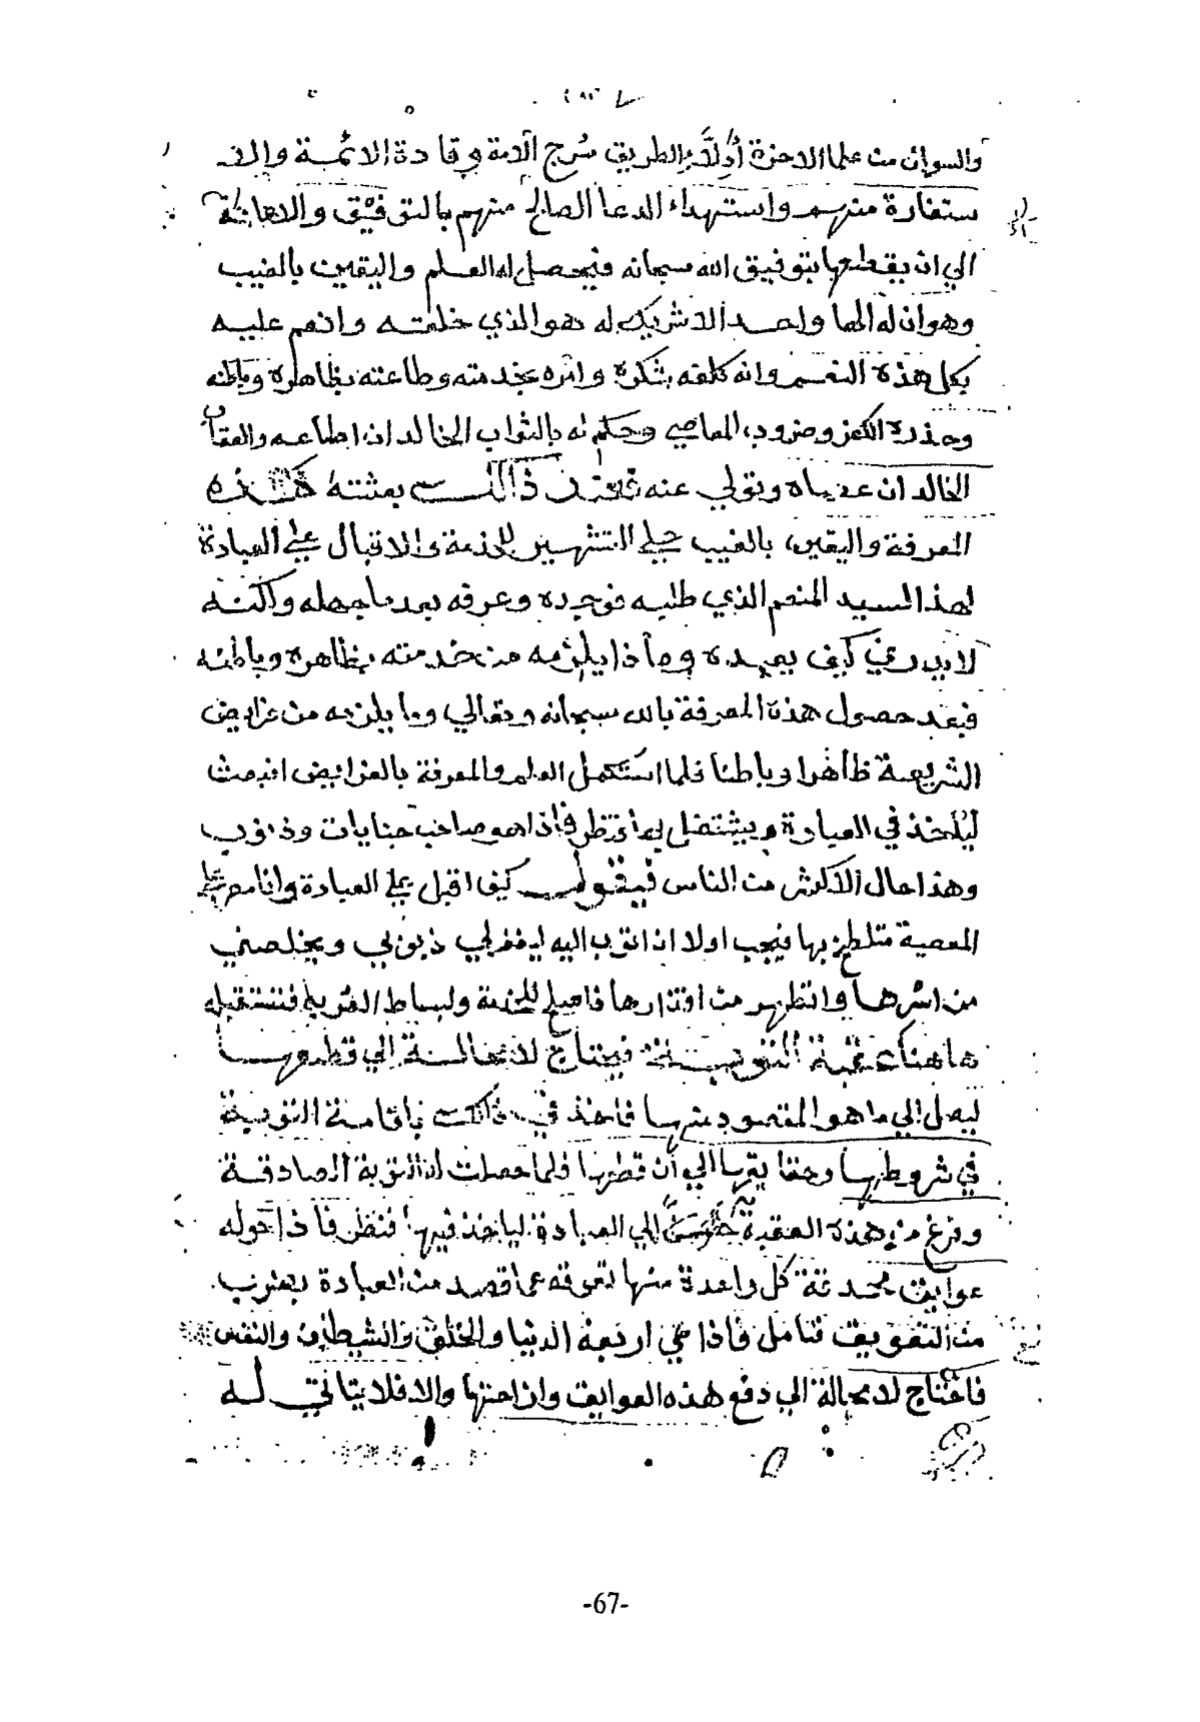 والسوال من علما الاخرة أدلّا الطريق سُرج الامة وقادة الائمة والا
ستفارة منهم واستهداء الدعا الصالح منهم بالتوفيق والاعانة
الي ان يقطعها بتوفيق الله سبحانه فيحصل له العلم واليقين بالغيب
وهو ان له الها واحدا لا شريك له هو الذي خلقه وانعم عليه
بكل هذه النعم وانه كلفه بشكره وامره بخدمته وطاعته بظاهره وباطنه
وحذره الكفر وضروب المعاصي وحكم له بالثواب الخالد ان اطاعه والعقاب
الخالد ان عصاه وتولي عنه فعند ذالك بعثته هذه
المعرفة واليقين بالغيب علي التشهير للخدمة والاقبال علي العبادة
لهذا السيد المنعم الذي طلبه فوجده وعرفه بعد ما جهله ولكنه
لا يدري كيف يعبده وما ذا يلزمه من خدمته بظاهره وباطنه
فبعد حصول هذه المعرفة بالله سبحانه وتعالي وما يلزمه من فرايض
الشريعة ظاهرا وباطنا فلما استكمل العلم والمعرفة بالفرايض انبعث
ليأخذ في العبادة ويشتغل بها فنظر فإذا هو صاحب جنايات وذنوب
وهذا حال الاكثر من الناس فيقول كيف اقبل علي العبادة وانا مصر علي
المعصية متلطخ بها فيجب اولا ان اتوب اليه ليغفر لي ذنوبي ويخلصني
من اسرها واتطهر من اقذارها فاصلح للخدمة ولبساط القربة فتستقبله
هاهنا عقبة التوبة فيحتاج لا محالة الي قطعها
ليصل الي ما هو المقصود منها فاخذ في ذلك باقامة التوبة
في شروطها وحقايقها الي أن قطعها فلما حصلت له التوبة الصادقة
وفرغ من هذه العقبة الي العبادة لياخذ فيها فنظر فاذا حوله
عوايق محدقة كل واحدة منها تعوقه عما قصد من العبادة بضرب
من التعويق فتامل فاذا هي اربعة الدنيا والخلق والشيطان والنفس
فاحتاج لا محالة الي دفع هذه العوايق وازاحتها والا فلا يتاتي له
-67-